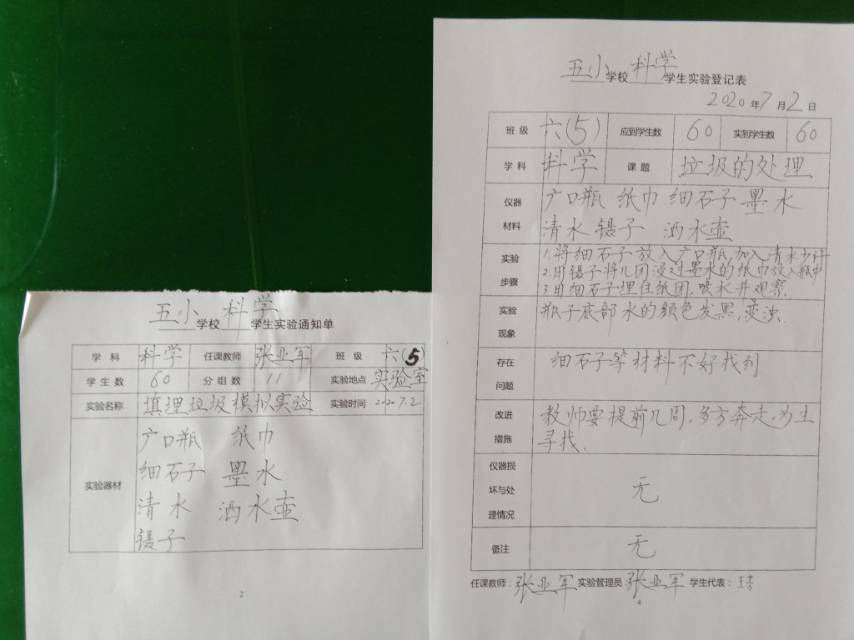 五小学校 科学 学生实验通知单
学科 科学 任课教师 张业军 班级 六(5)
学生数 60 分组数 11 实验地点 实验室
实验名称 填理垃圾模拟实验 实验时间 2020.7.2
实验器材
广口瓶 纸巾
细石子 墨水
清水 洒水壶
镊子
2
五小学校 科学 学生实验登记表
2020年7月2日
班级 六(5) 应到学生数 60 实到学生数 60
学科 科学 课题 垃圾的处理
仪器材料
广口瓶 纸巾 细石子 墨水
清水 镊子 洒水壶
实验步骤
1.将细石子放入广口瓶,加入清水少许
2.用镊子将几团浸过墨水的纸巾放入瓶中
3.用细石子埋住纸团,喷水并观察.
实验现象
瓶子底部水的颜色发黑,变浊.
存在问题
细石子等材料不好找到
改进措施
教师要提前几周,多方奔走,为生
寻找.
仪器损坏与处理情况 无
备注 无
任课教师:张业军 实验管理员 张业军 学生代表:
4